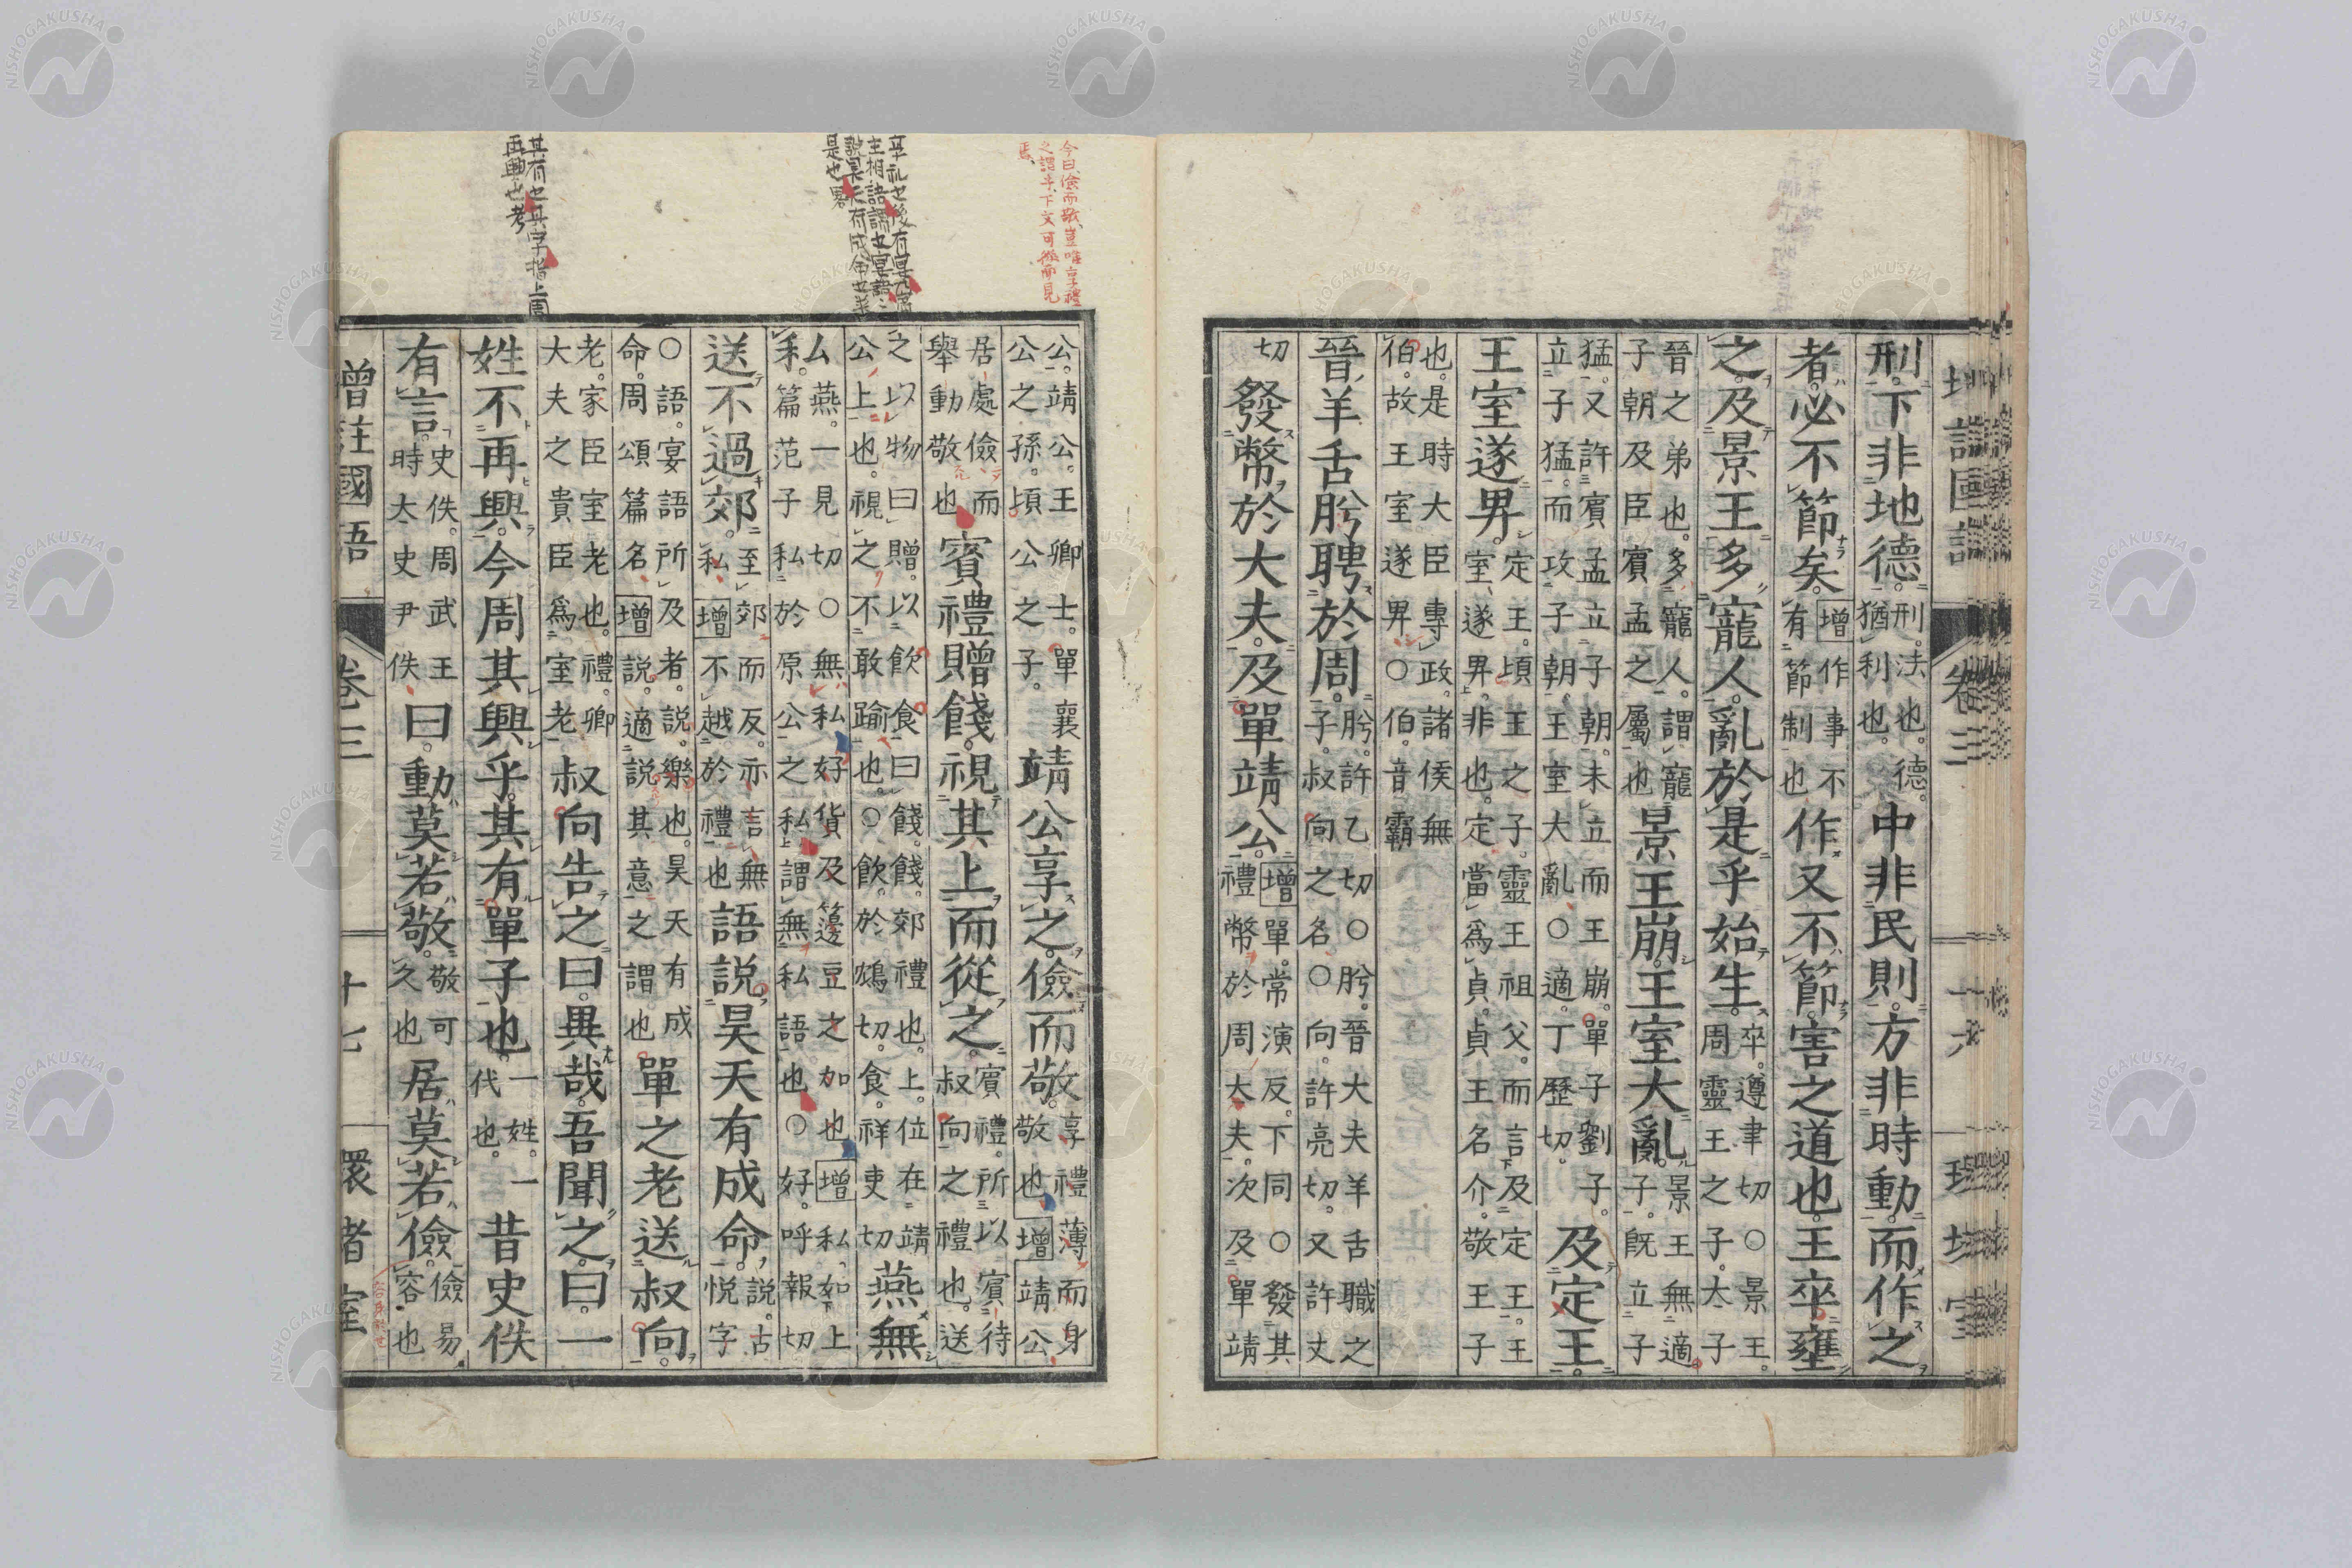 刑。下非地德。刑。法也。德。猶利也。中非民則。方非時動。而作之
者。必不節矣。增作事不有節制也作又不節。害之道也。王卒壅
之。及景王多寵人。亂於是乎始生。卒。遵聿切○景王。周靈王之子。太子
晉之弟也。多寵人。謂寵子朝及臣賓孟之屬也景王崩。王室大亂。景王無適子。既立子
猛。又許賓孟立子朝。未立而王崩。單子劉子。立子猛。而攻子朝。王室大亂。○適丁歷切。及定王。
王室遂卑。定王。頃王之子。靈王祖父。而言及定王。王室遂卑。非也。定當為貞。貞王名介。敬王子
也。是時大臣專政。諸侯無伯。故王室遂卑○伯。音霸
晉羊舌肸聘於周。肸。許乙切○肸。晉大夫羊舌職之子。叔向之名。○向。許亮切。又許丈
切發幣於大夫。及單靖公。增單。常演反。下同○發其禮幣於周大夫。次及單靖
卷三
十六
公。靖公。王卿士。單襄公之孫。頃公之子。靖公享之。儉而敬。享禮薄而身敬也增靖公
居處儉而舉動敬也賓禮贈餞。視其上而從之。賓禮。所以賓待叔向之禮也。送
之以物曰贈。以飲食曰餞。餞。郊禮也。上。位在靖公上也。視之不敢踰也。○飲。於鴆切。食。祥吏切燕無
私。燕。一見切○無私好貨及籩豆之加也增私如上篇范子私於原公之私謂無私語也○好。呼報切
送不過郊。至郊而反。亦言無私增不越於禮也語說昊天有成命。說。古悅字
○語。宴語所及者。說。樂也。昊天有成命。周頌篇名增說。適說其意之謂也單之老送叔向。
老。家臣室老也。禮。卿大夫之貴臣為室老叔向告之曰。異哉。吾聞之曰。一
姓不再興。今周其興乎。其有單子也。一姓。一代也。昔史佚
有言。史佚。周武王時太史尹佚曰。動莫若敬。敬可久也居莫若儉。儉易容也
增註國語
卷三
十七
環堵室